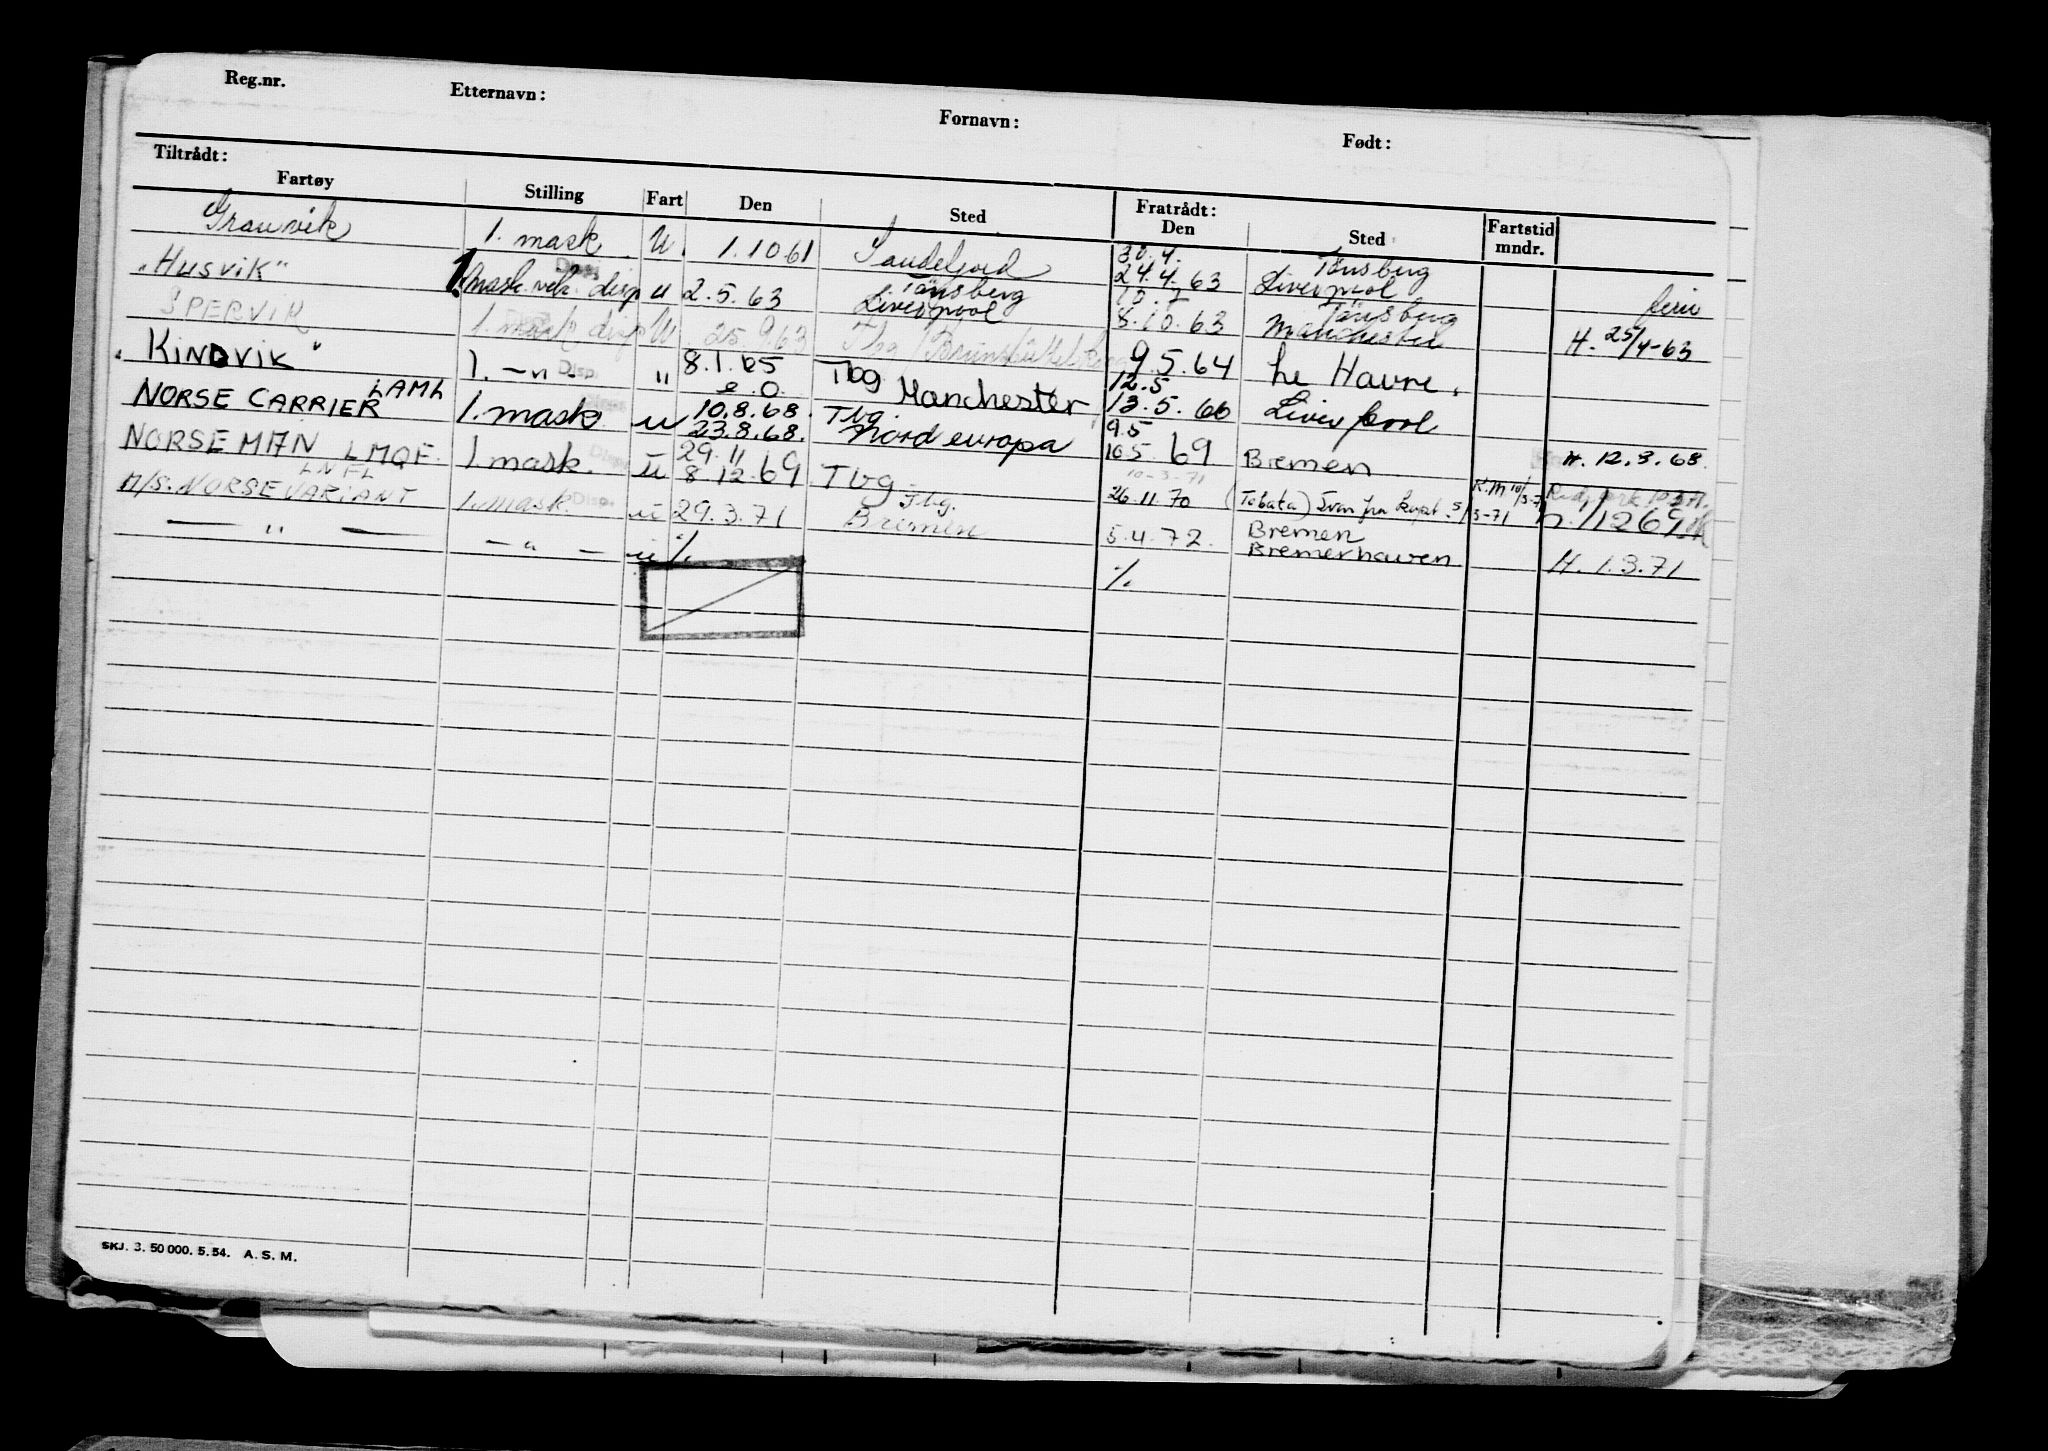 Reg.nr. Etternavn: Fornavn: Født:
Tiltrådt: Fratrådt:
Fartøy Stilling Fart Den Sted Den Sted Fartstid mndr.
Granvik 1. mask. U. 1.10 61 Sandefjord 30.4. Tönsberg
24.4.63 Liverpool
"Husvik" 1. mask. vik. disp u 2.5.63 Tönsberg 10.7 Tönsberg ferie
Liverpool 8.10.63 Manchester H. 25/4-63
SPERVIK 1. mask disp U 25.9.63 Tbg Brunsbüttel 9.5.64 Le Havre.
"KINDVIK" 1. -"- Disp. " 8.1.65 Tbg Manchester 12.5
e.O. 13.5.66 Liverpool
NORSE CARRIER LAML 1. mask. u 10.8.68. Tbg. 9.5
23.8.68. Nord europa 10.5.69 Bremen H. 12.3.68.
NORSE MAN LMQF. 1. mask. u 29.11 10-3-71
8.12.69 Tbg. 26.11.70 (Tobata) Iran fra kapt. 5/3-71
M/S. NORSE VARIANT LNFL 1. mask. Disp. u 29.3.71 Tbg. Bremen 5.4.72. Bremen
Bremerhaven H. 1.3.71
— " — — " — u % %
SKJ. 3. 50 000. 5. 54. A. S. M.